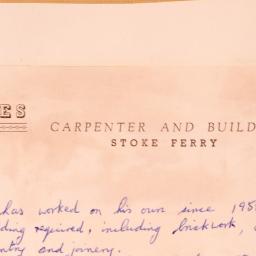 ES
CARPENTER AND BUILD
STOKE FERRY
has worked on his own since 195
ding required, including brickwork,
ntry and joinery.